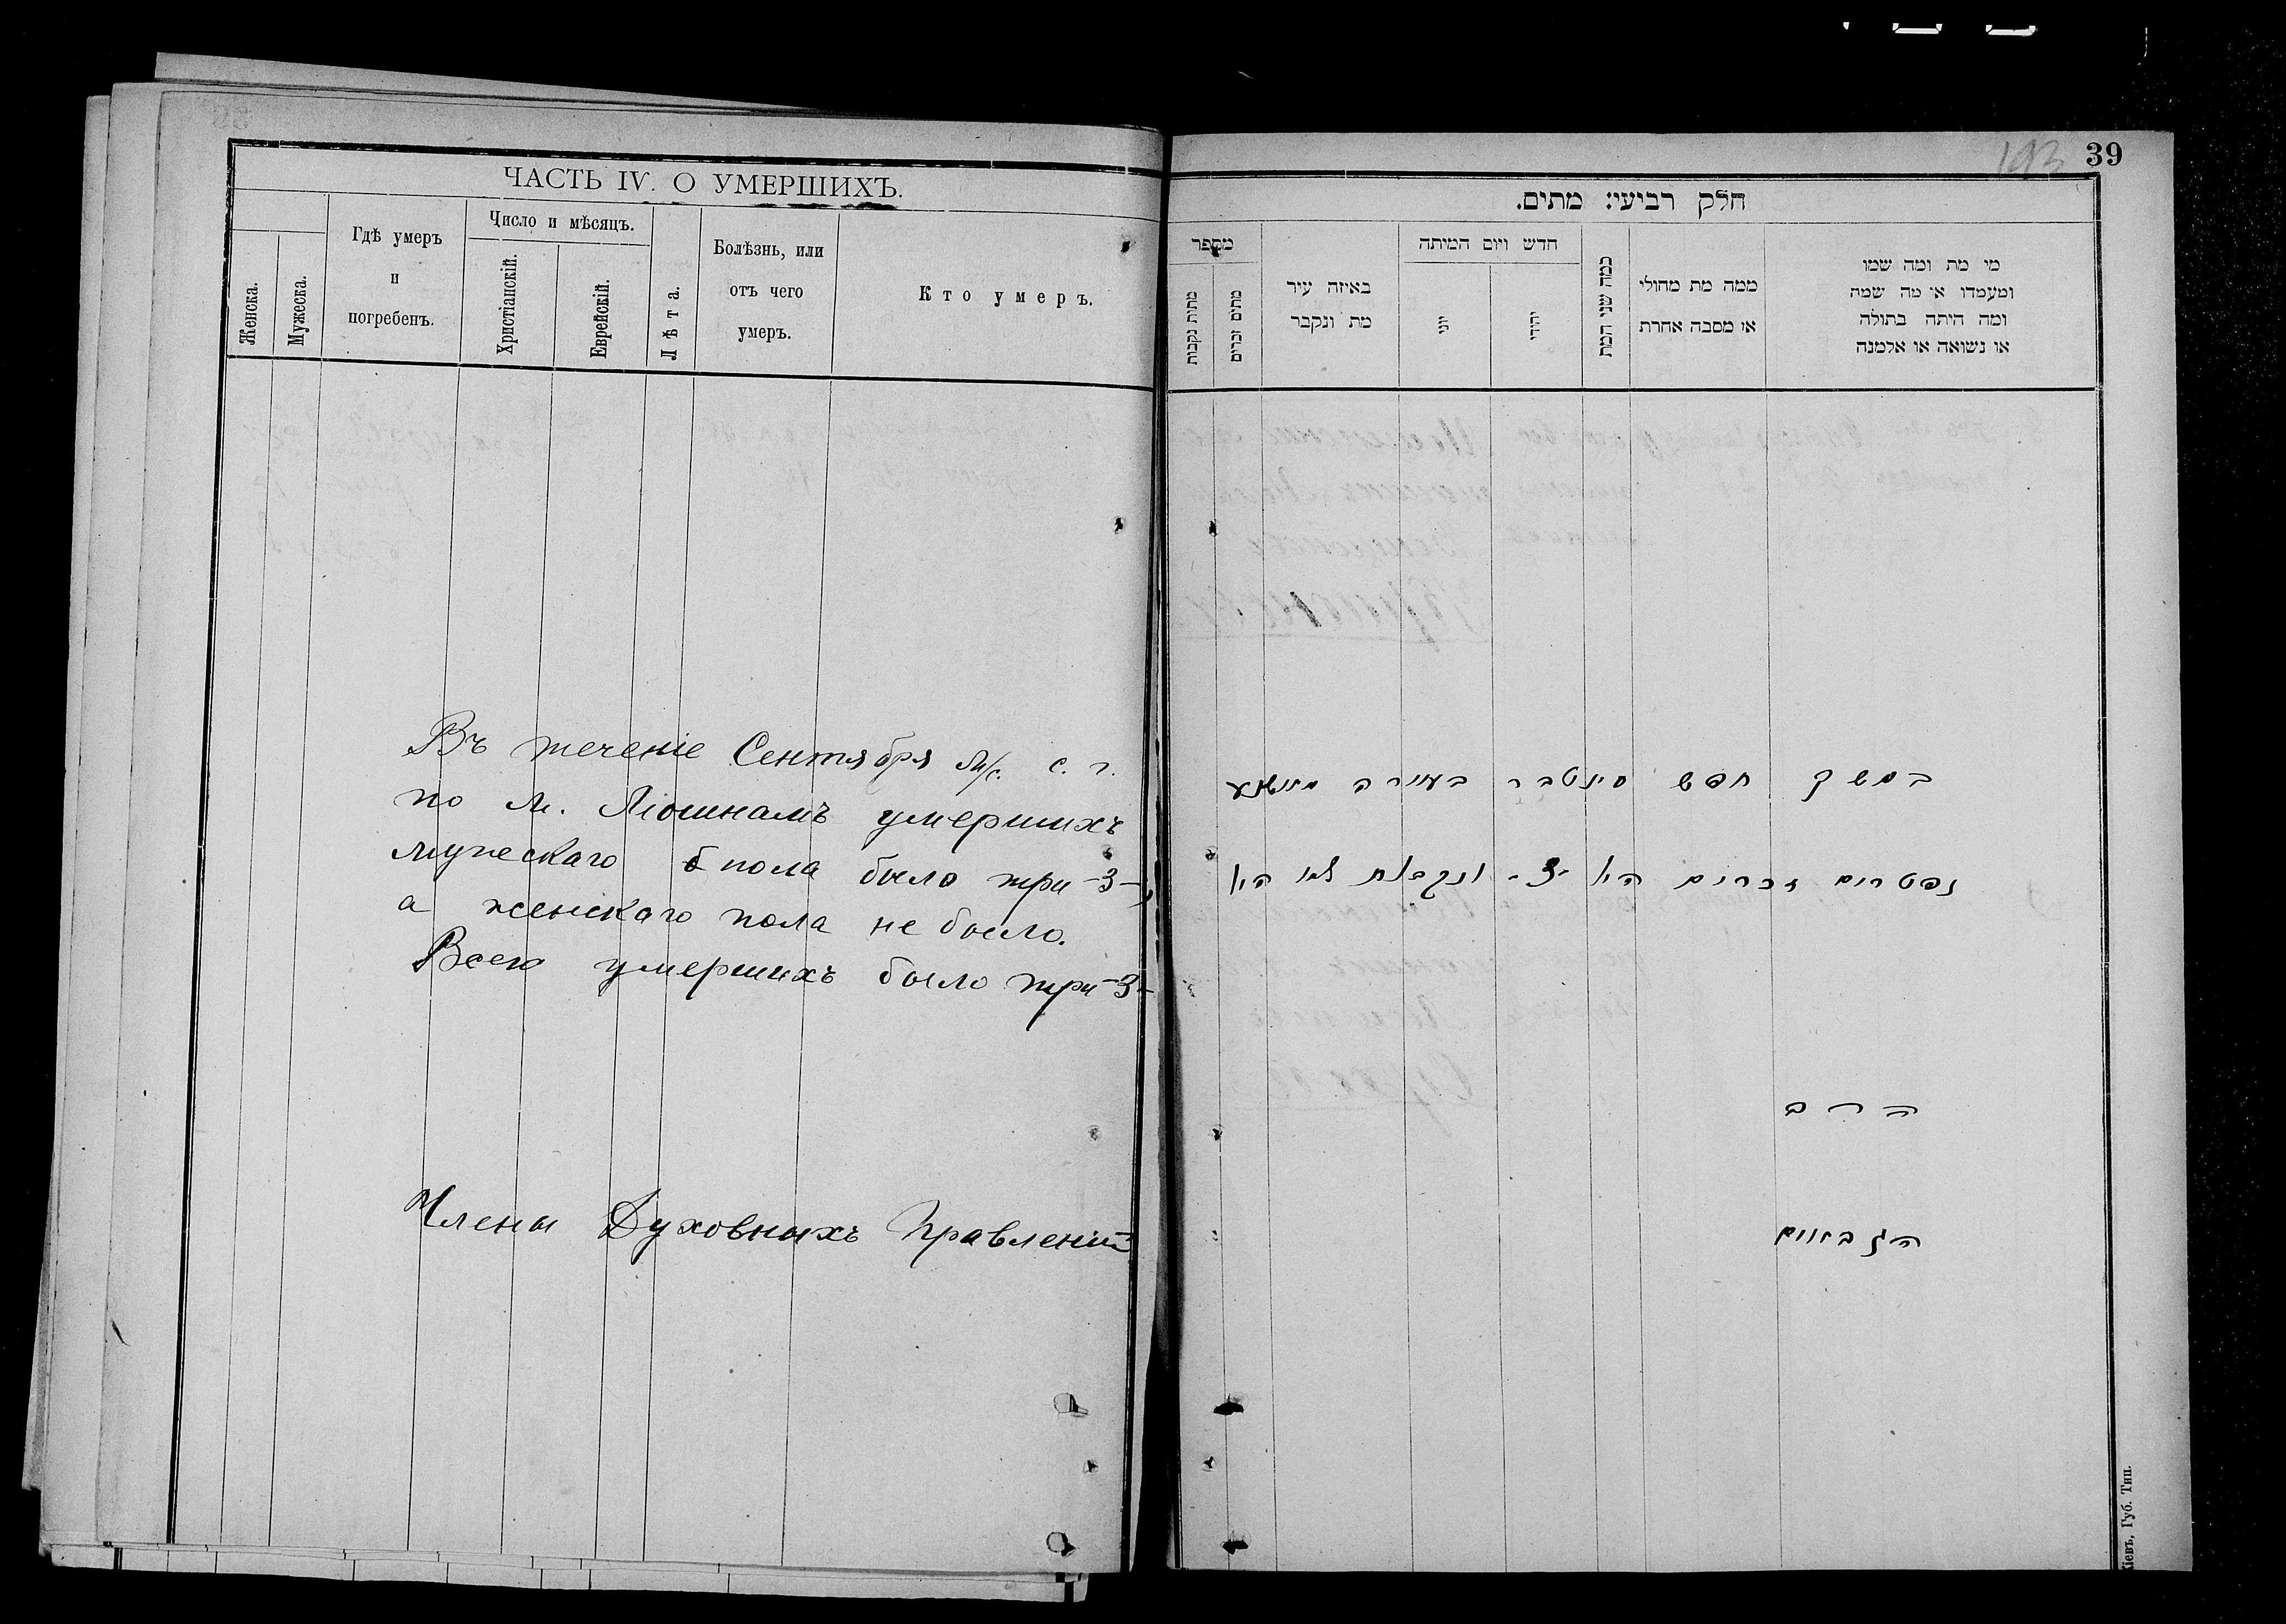 ЧАСТЬ IV. О УМЕРШИХЪ.
Женска.
Мужеска.
Гдѣ умеръ
и
погребенъ.
Число и мѣсяцъ.
Христіанскій.
Еврейскій.
Лѣта.
Болѣзнь, или
отъ чего
умеръ.
Кто умеръ.
Въ теченіе Сентября м/с. с. г.
по м. Мошнамъ умершихъ
мужескаго пола было три -3-,
а женскаго пола не было.
Всего умершихъ было три -3-
Члены Духовныхъ Правленій
39
193
חלק רביעי: מתים.
מספר
מתות נקבות
מתים זכרים
באיזה עיר
מת ונקבר
חדש ויום המיתה
יוני
יהודי
כמה שני המת
ממה מת מחולי
או מסבה אחרת
מי מת ומה שמו
ומעמדו או מה שמה
ומה היתה בתולה
או נשואה או אלמנה
במשך חדש סינטבר בעירה
נפטרים זכרים היו -3- ונקבות לא היו
הרב
הגבאים
Кіевъ, Губ. Тип.